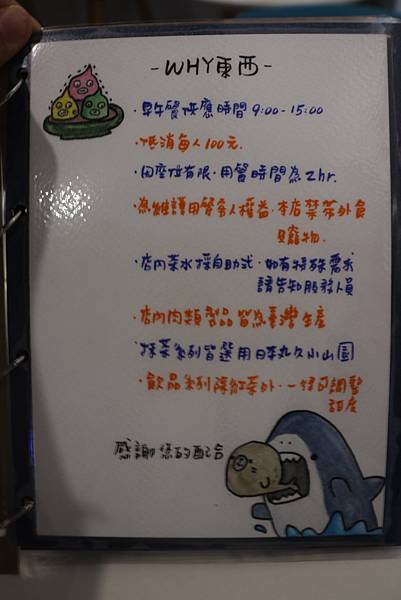 -WHY東西-
·早午餐供應時間 9:00-15:00
·低消每人100元.
·因座位有限·用餐時間為2hr.
·為維護用餐客人權益·本店禁帶外食
與寵物·
·店內茶水採自助式·如有特殊需求
請告知服務人員
·店內肉類製品皆為臺灣生產
·抹茶系列皆選用日本丸久小山園
·飲品系列除紅茶外·一律可調整
甜度
感謝您的配合